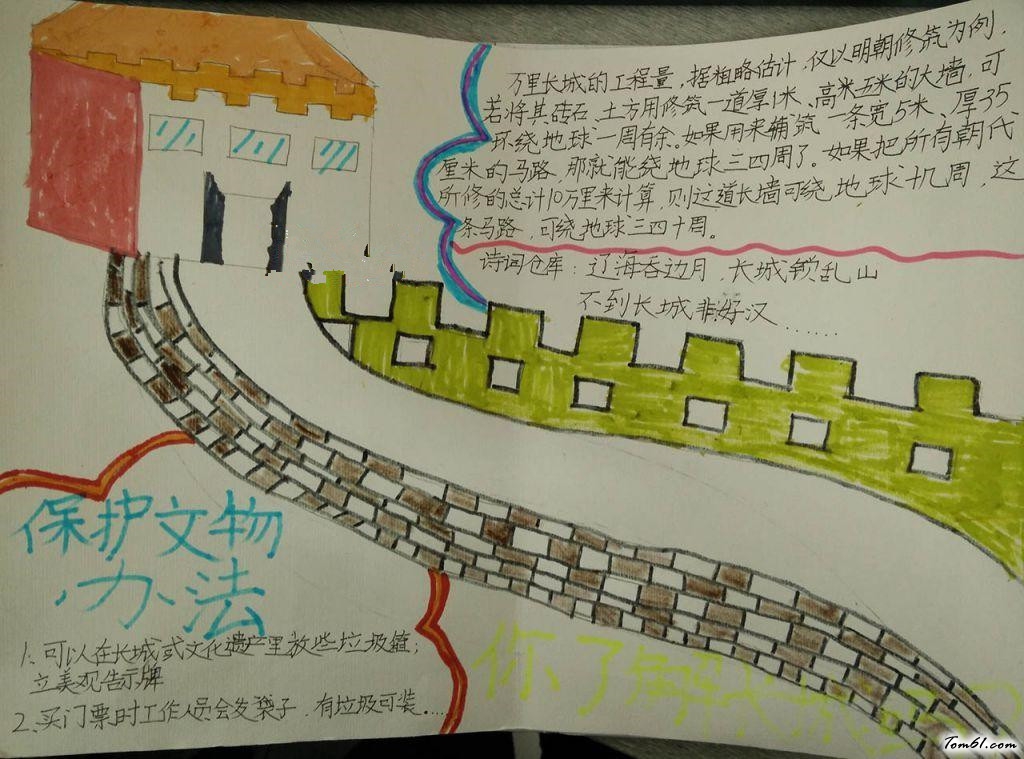 万里长城的工程量，据粗略估计，仅以明朝修筑为例，
若将其砖石、土方用修筑一道厚1米、高米五米的大墙，可
环绕地球一周有余。如果用来铺筑一条宽5米、厚35
厘米的马路，那就能绕地球三四周了。如果把所有朝代
所修的总计10万里来计算，则这道长墙可绕地球十几周，这
条马路，可绕地球三四十周。
诗词仓库：辽海吞边月，长城锁乱山
不到长城非好汉……
保护文物
办法
1、可以在长城或文化遗产里放些垃圾箱；
立美观告示牌
2、买门票时工作人员会发袋子，有垃圾可装....
你了解
Tom61.com